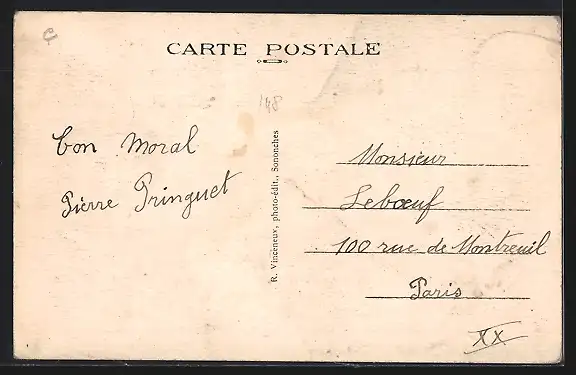 CARTE POSTALE
148
bon moral
Pierre Pringuet
R. Vinceneux, photo-édit., Sononches
Monsieur
Lebœuf
100 rue de Montreuil
Paris
XX